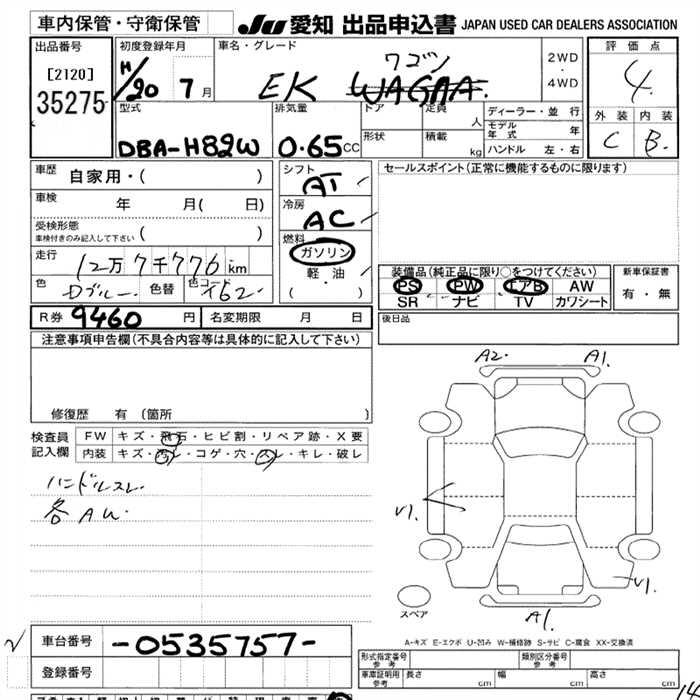 車内保管・守衛保管
JU 愛知 出品申込書 JAPAN USED CAR DEALERS ASSOCIATION
出品番号
[2120]
35275
初度登録年月
H/20 7月
車名・グレード
ワゴン
EK WAGAA.
2WD
・
4WD
評価点
4.
外装 内装
C B.
型式
DBA-H82W
排気量
0.65cc
ドア
形状
定員 人
積載 kg
ディーラー・並行
モデル年式 年
ハンドル 左・右
車歴
自家用・( )
車検
年 月( 日)
受検形態
車検付きのみ記入して下さい ( )
走行
12万7千776km
色
Dブルー
色替
色コード
T62
シフト
AT
冷房
AC
燃料
ガソリン
軽・油
( )
セールスポイント(正常に機能するものに限ります)
装備品(純正品に限り○をつけてください)
PS PW エアB AW
SR ナビ TV カワシート
新車保証書
有・無
R券 9460 円
名変期限 月 日
後日品
注意事項申告欄(不具合内容等は具体的に記入して下さい)
修復歴 有 〔箇所 〕
検査員
記入欄
FW キズ・飛石・ヒビ割・リペア跡・X要
内装 キズ・汚レ・コゲ・穴・スレ・キレ・破レ
ハンドルスレ
各AU
A2. A1.
V1.
V1.
A1.
スペア
A-キズ E-エクボ U-凹み W-補修跡 S-サビ C-腐食 XX-交換済
車台番号
-0535757-
登録番号
形式指定番号
参考
類別区分番号
参考
車庫証明用
参考
長さ 幅 高さ
14